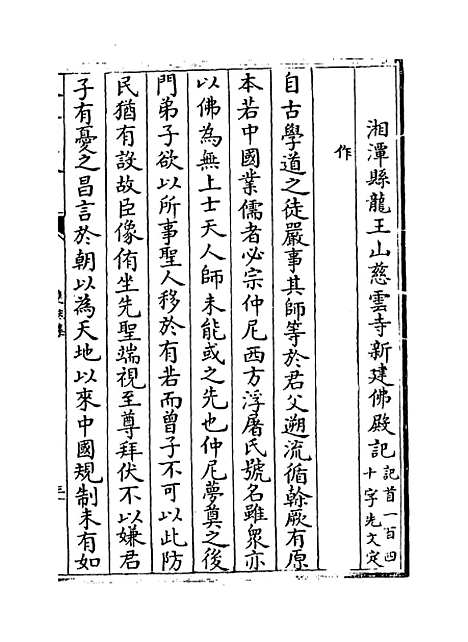 湘潭縣龍王山慈雲寺新建佛殿記記首一百四十字先文定
作
自古學道之徒嚴事其師等於君父遡流循榦厥有原
本若中國業儒者必宗仲尼西方浮屠氏號名雖衆亦
以佛為無上士天人師未能或之先也仲尼夢奠之後
門弟子欲以所事聖人移於有若而曾子不可以此防
民猶有設故臣像侑坐先聖端視至尊拜伏不以嫌君
子有憂之昌言於朝以為天地以來中國規制未有如